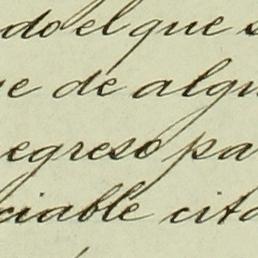 do el que s
e de algu
egreso pa
ciable cita